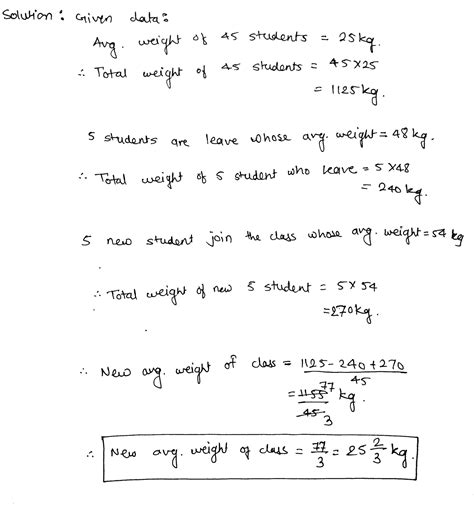 Solution : Given data :
Avg. weight of 45 students = 25 kg.
∴ Total weight of 45 students = 45 × 25
= 1125 kg.
5 students are leave whose avg. weight = 48 kg.
∴ Total weight of 5 student who leave = 5 × 48
= 240 kg.
5 new student join the class whose avg. weight = 54 kg
∴ Total weight of new 5 student = 5 × 54
= 270 kg.
∴ New avg. weight of class = 1125 - 240 + 270
45
= 1155 77 kg.
45 3
∴ New avg. weight of class = 77/3 = 25 2/3 kg.